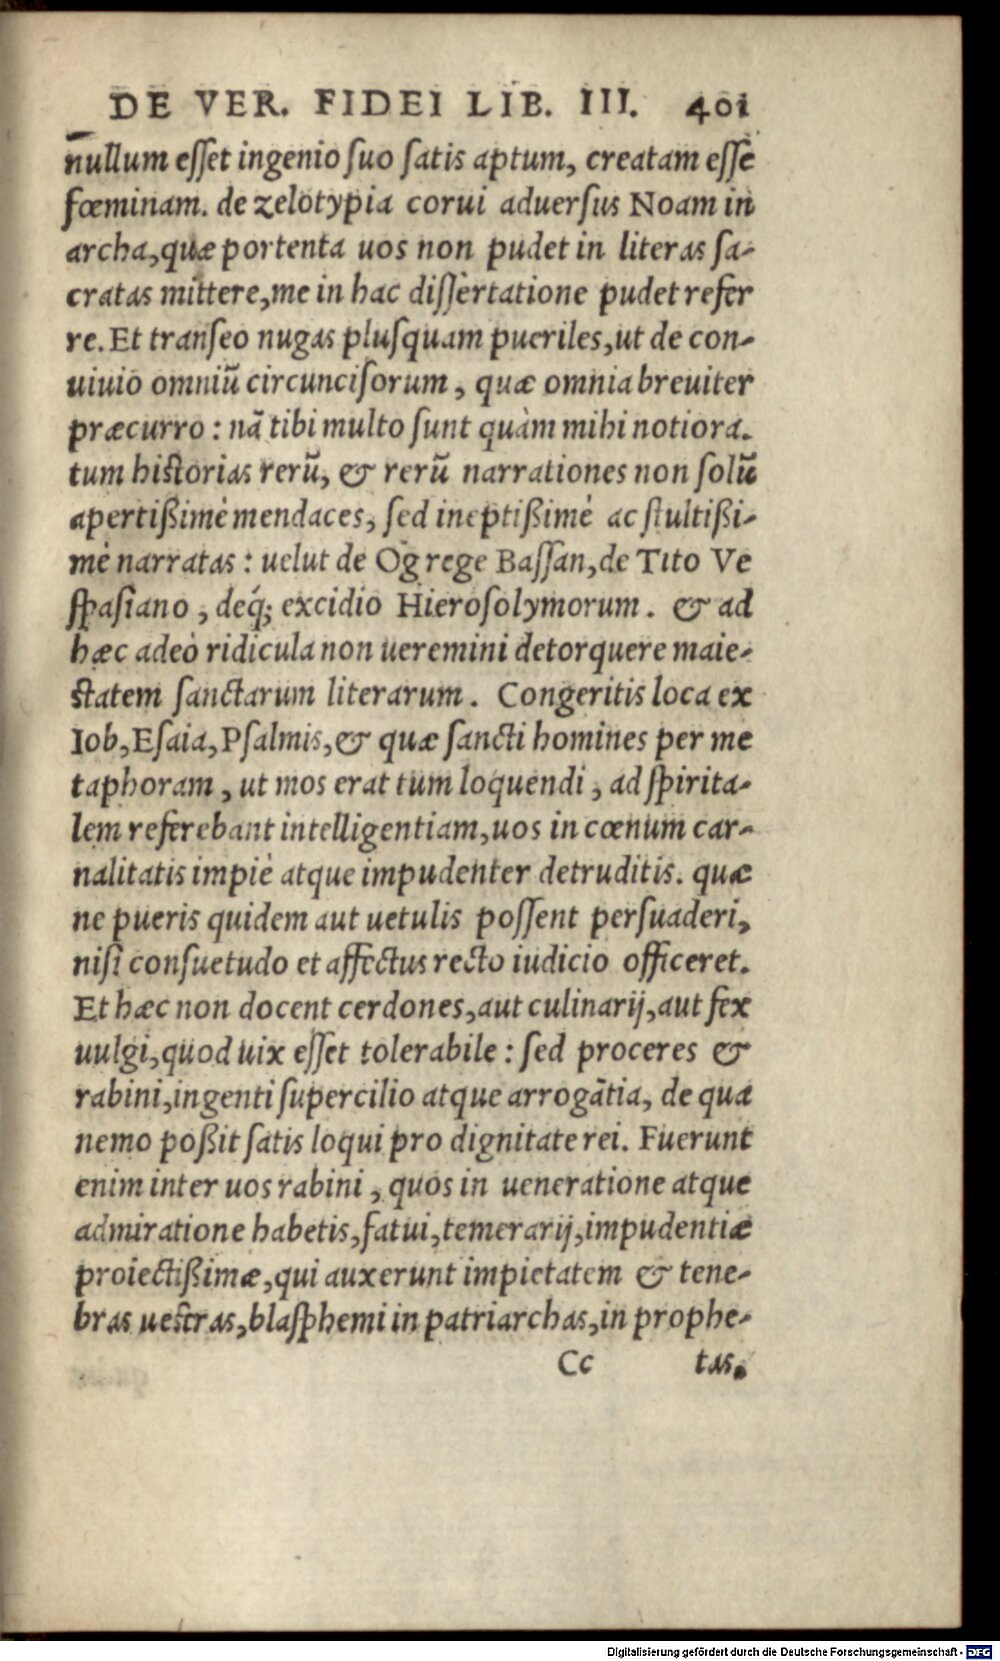 DE VER. FIDEI LIB. III. 401
nullum esset ingenio suo satis aptum, creatam esse
fœminam. de zelotypia corui aduersus Noam in
archa, quæ portenta uos non pudet in literas sa-
cratas mittere, me in hac dissertatione pudet refer
re. Et transeo nugas plusquam pueriles, ut de con-
uiuio omniū circuncisorum, quæ omnia breuiter
præcurro: nā tibi multo sunt quàm mihi notiora.
tum historias rerū, & rerū narrationes non solū
apertißimè mendaces, sed ineptißimè ac stultißi-
mè narratas: uelut de Og rege Bassan, de Tito Ve
spasiano, deq́; excidio Hierosolymorum. & ad
hæc adeò ridicula non ueremini detorquere maie-
statem sanctarum literarum. Congeritis loca ex
Iob, Esaia, Psalmis, & quæ sancti homines per me
taphoram, ut mos erat tum loquendi, ad spirita-
lem referebant intelligentiam, uos in cœnum car-
nalitatis impiè atque impudenter detruditis. quæ
ne pueris quidem aut uetulis possent persuaderi,
nisi consuetudo et affectus recto iudicio officeret.
Et hæc non docent cerdones, aut culinarij, aut fex
uulgi, quod uix esset tolerabile: sed proceres &
rabini, ingenti supercilio atque arrogātia, de qua
nemo poßit satis loqui pro dignitate rei. Fuerunt
enim inter uos rabini, quos in ueneratione atque
admiratione habetis, fatui, temerarij, impudentiæ
proiectißimæ, qui auxerunt impietatem & tene-
bras uestras, blasphemi in patriarchas, in prophe-
Cc tas,
Digitalisierung gefördert durch die Deutsche Forschungsgemeinschaft - DFG